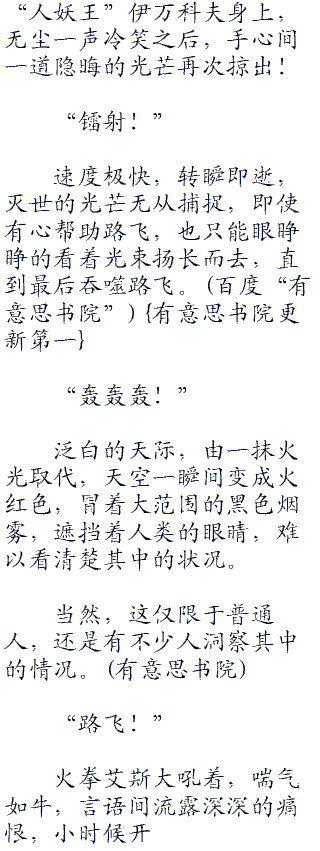 “人妖王”伊万科夫身上，
无尘一声冷笑之后，手心间
一道隐晦的光芒再次掠出！
“镭射！”
速度极快，转瞬即逝，
灭世的光芒无从捕捉，即使
有心帮助路飞，也只能眼睁
睁的看着光束扬长而去，直
到最后吞噬路飞。(百度“有
意思书院”) {有意思书院更
新第一}
“轰轰轰！”
泛白的天际，由一抹火
光取代，天空一瞬间变成火
红色，冒着大范围的黑色烟
雾，遮挡着人类的眼睛，难
以看清楚其中的状况。
当然，这仅限于普通
人，还是有不少人洞察其中
的情况。(有意思书院)
“路飞！”
火拳艾斯大吼着，喘气
如牛，言语间流露深深的痛
恨，小时候开